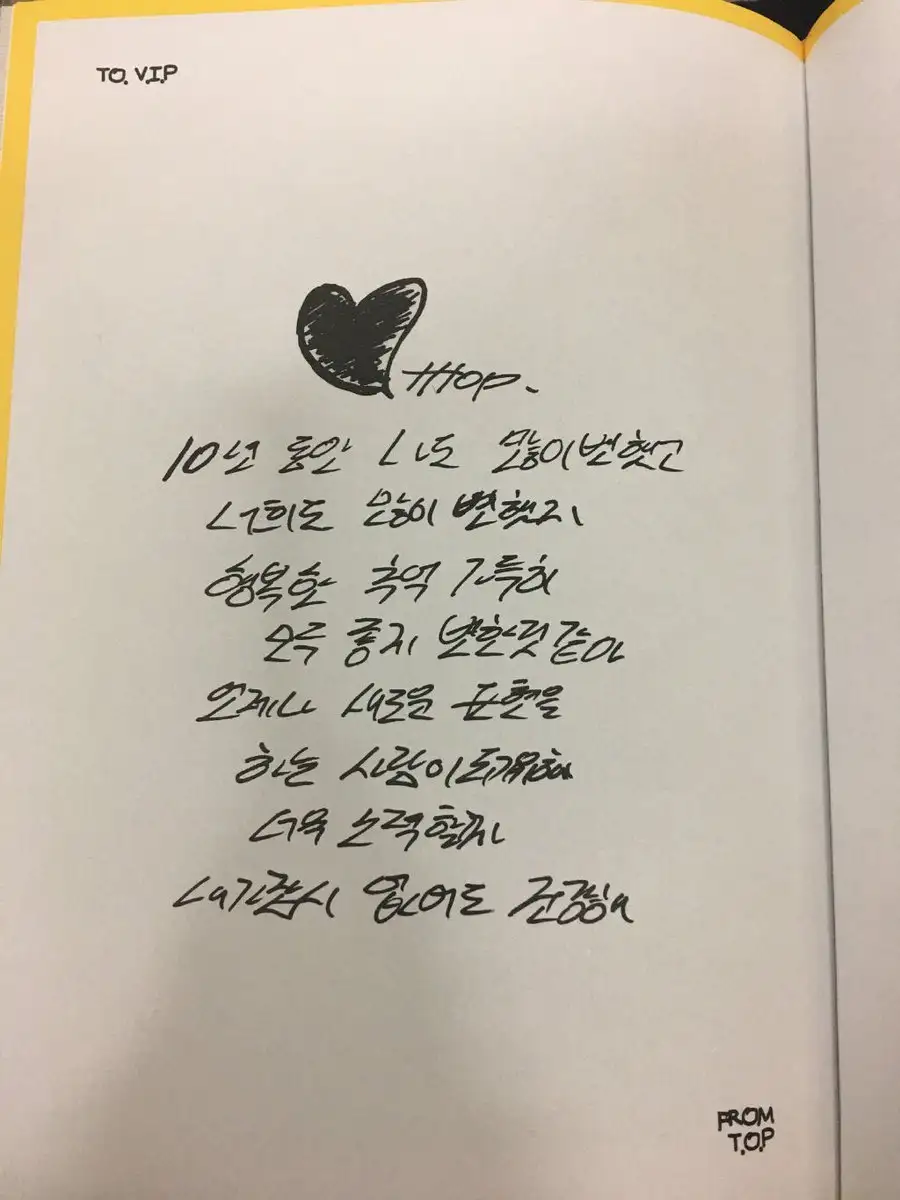 TO. V.I.P
10년 동안 나도 많이 변했고
너희도 많이 변했지
행복한 추억 가득히
모두 좋지 변한것 같아
언제나 새로운 표현을
하는 사람이 되기위해
더욱 노력할께
내가 잠시 없어도 건강해
FROM
T.O.P